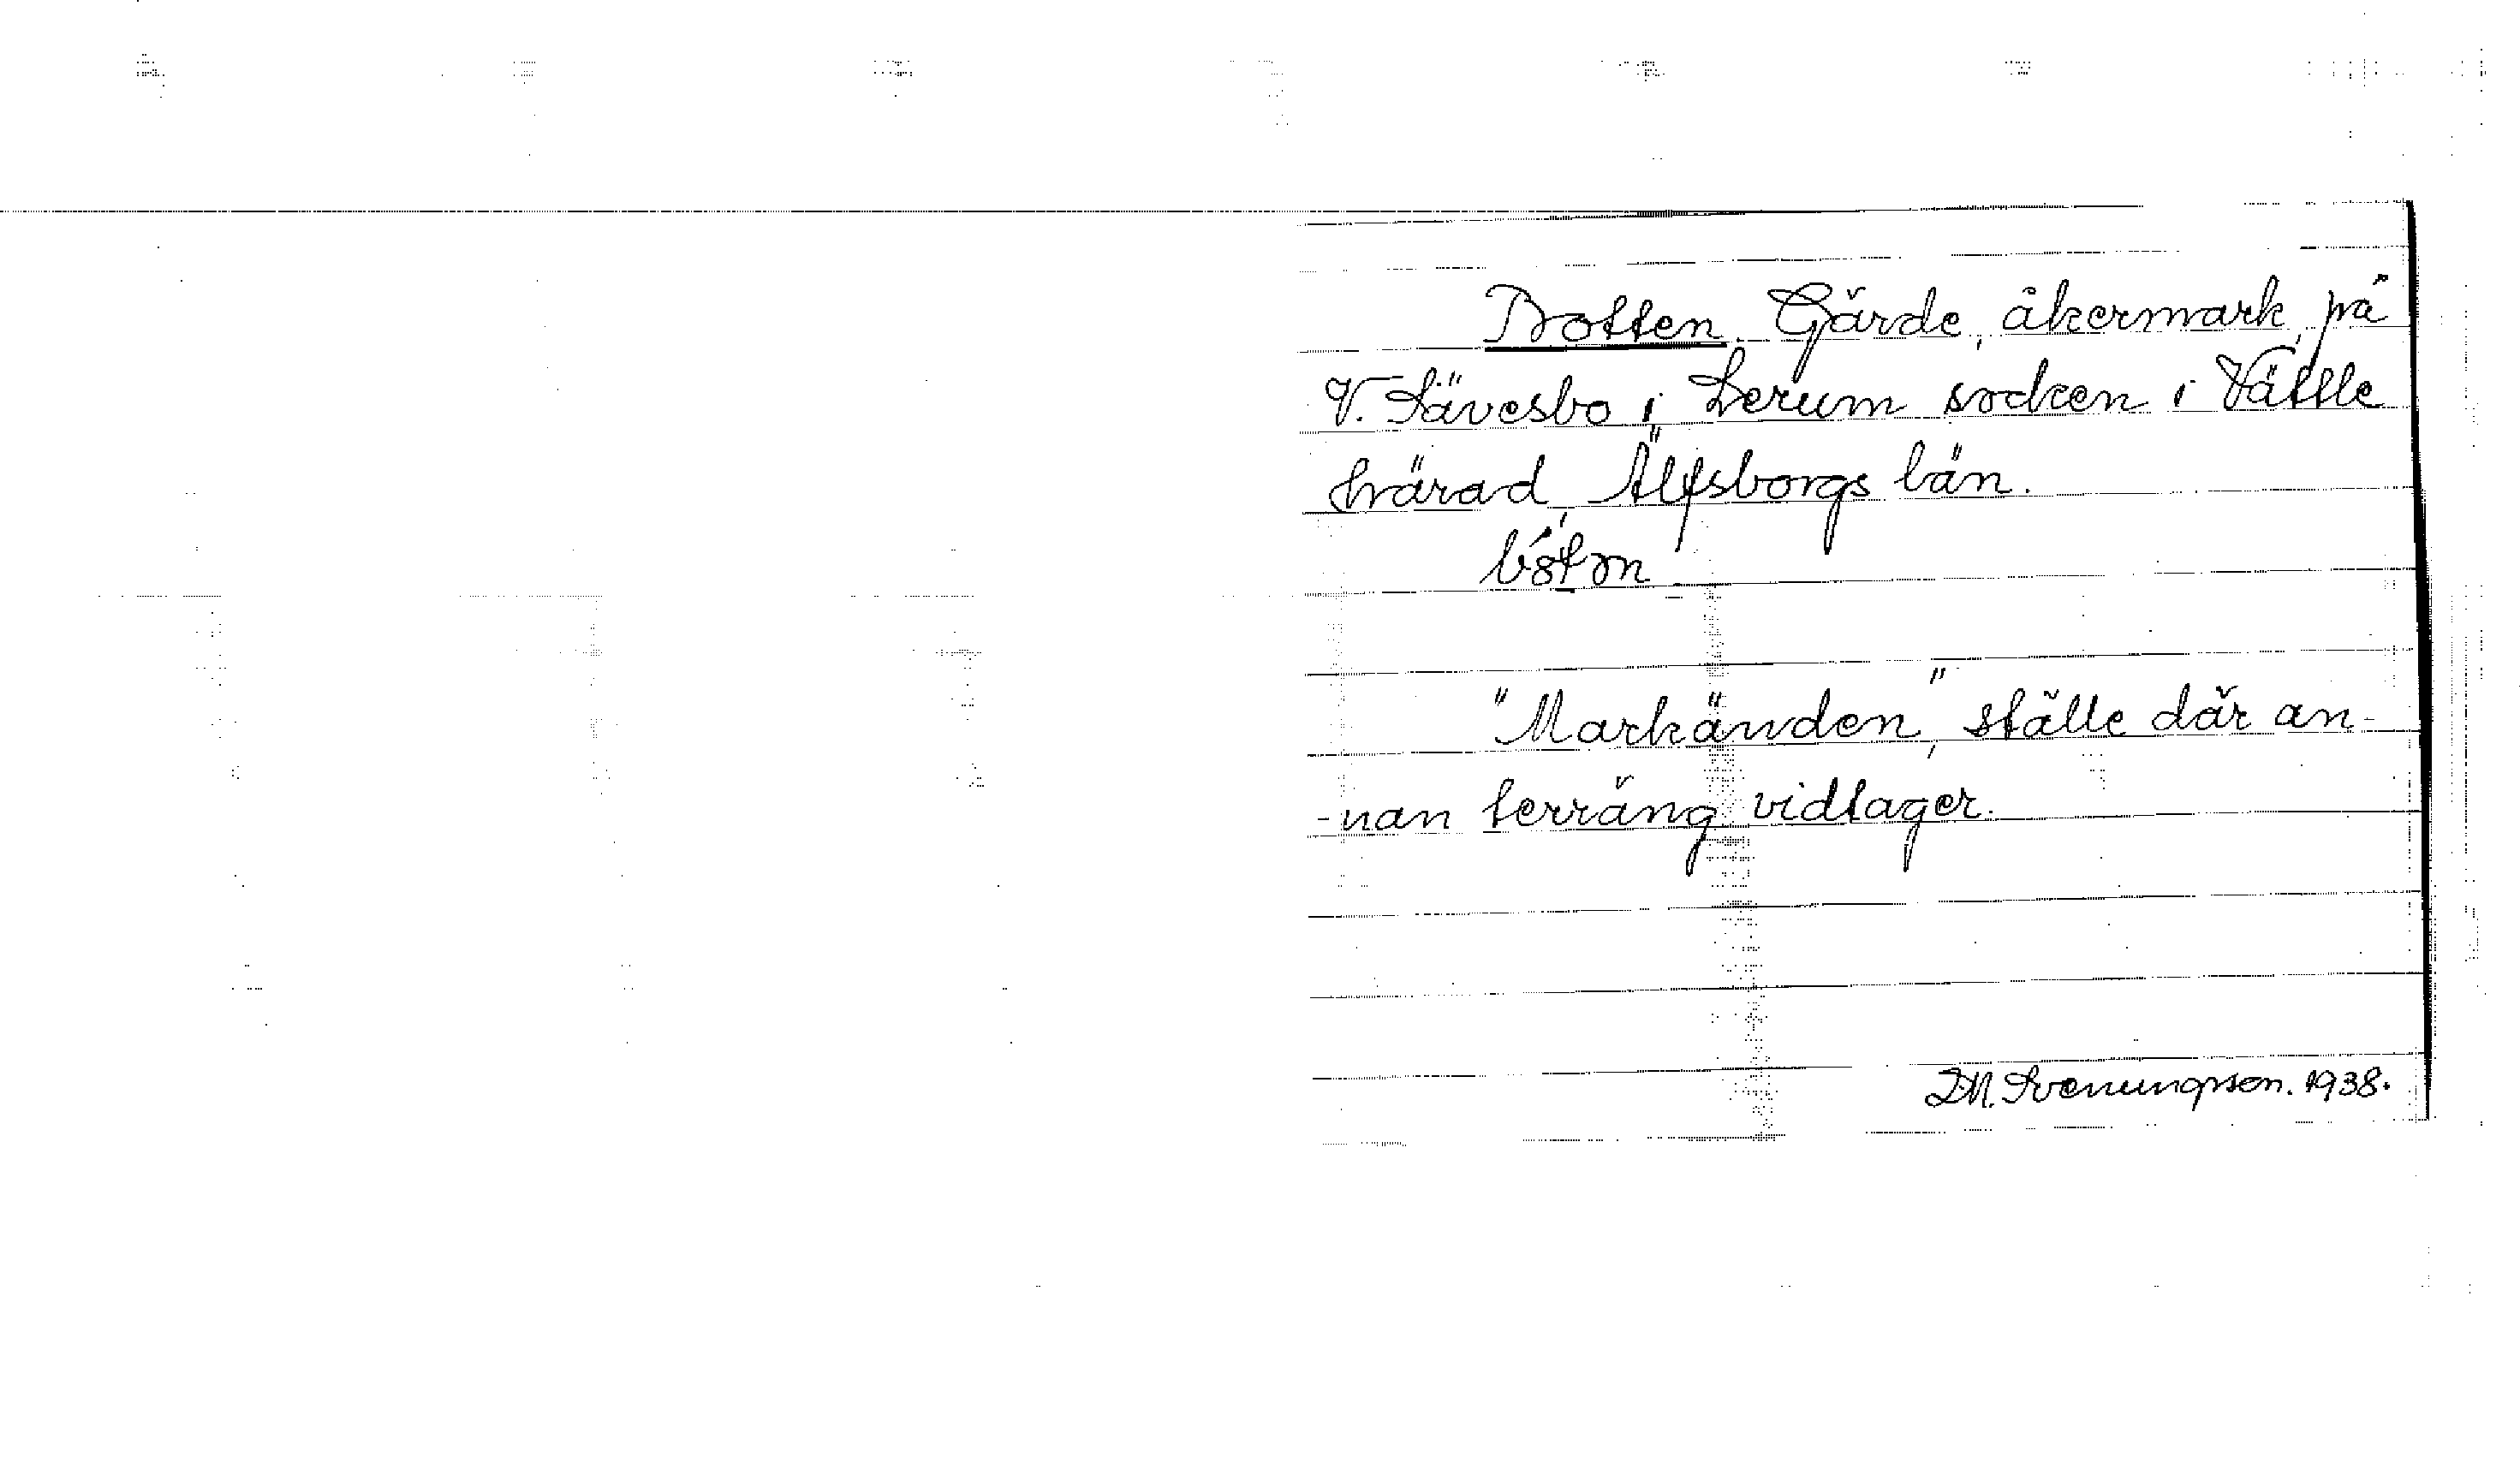 Botten. Gärde, åkermark, på
V. Sävesbo i Lerum socken i Vättle
härad, Älfsborgs län.
"Markänden", ställe där an-
-nan terräng vidtager.
D.N. Svenungsson. 1938.